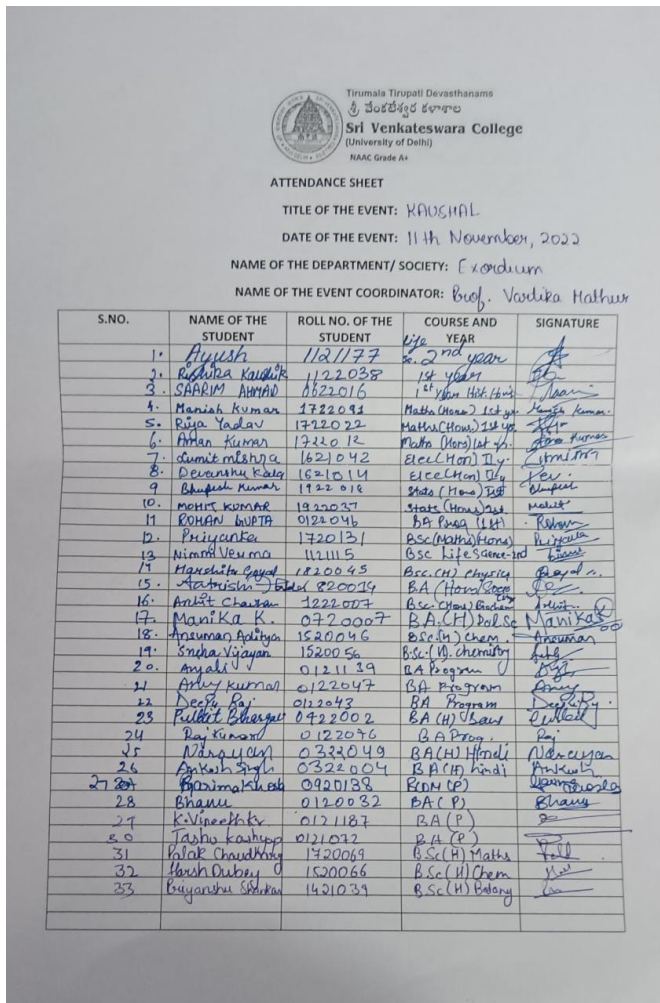 Tirumala Tirupati Devasthanams
శ్రీ వేంకటేశ్వర కళాశాల
Sri Venkateswara College
(University of Delhi)
NAAC Grade A+
ATTENDANCE SHEET
TITLE OF THE EVENT: KAUSHAL
DATE OF THE EVENT: 11th November, 2022
NAME OF THE DEPARTMENT/ SOCIETY: Exordium
NAME OF THE EVENT COORDINATOR: Prof. Vartika Mathur
S.NO. NAME OF THE STUDENT ROLL NO. OF THE STUDENT COURSE AND YEAR SIGNATURE
1. Ayush 1121177 life sc. 2nd year
2. Rishika Kaushik 1122038 1st year
3. SAARIM AHMAD 0622016 1st year Hist. Hons
4. Manish Kumar 1722091 Maths (Hons) 1st yr. Manish Kumar.
5. Riya Yadav 1722022 Maths (Hons) 1st yr.
6. Aman Kumar 1722012 Maths (Hons) 1st yr. Aman Kumar
7. Sumit mishra 1621042 Elec(Hon) II y.
8. Devanshu Kala 1621014 Elec(Hon) II y Dev.
9 Bhupesh Kumar 1922018 Stats (Hons) Ist Bhupesh
10. MOHIT KUMAR 1922037 Stats (Hons) 1st Mohit
11 ROHAN GUPTA 0122046 BA Prog (1st) Rohan
12. Priyanka 1720131 BSc(Maths)(Hons) Priyanka
13 Nimmi Verma 1121115 BSc Life Science-2nd
14 Goyal 1820045 Bsc.(H) Physics Goyal
15. 820014 BA (Hons) Socio
16. Ankit Chauhan 1222007 Bsc. (Hons) Biochem Ankit
17. Manika K. 0720007 B.A.(H) Pol.Sc Manika
18. Ansuman Aditya 1520046 BSc.(H) Chem. Ansuman
19. Sneha Vijayan 1520056 B.Sc.(H). Chemistry
20. Anjali 0121139 BA Program
21 Anuj Kumar 0122047 BA Program Anuj
22 Deepu Raj 0122043 BA Program
23 Pulkit Bhargav 0422002 BA (H) Pulkit
24 Raj Kumar 0122076 BA Prog. Raj
25 Narayan 0322049 BA(H) Hindi Narayan
26 Ankush Singh 0322004 BA(H) hindi Ankush
27 0920138 (P)
28 Bhanu 0120032 BA(P) Bhanu
29 K. 0121187 BA(P)
30 Tashu Kashyap 0121072 BA (P)
31 Palak Chaudhary 1720069 B.Sc(H) Maths
32 Harsh Dubey 1520066 B.Sc(H) Chem
33 1421039 B.Sc(H) Botany